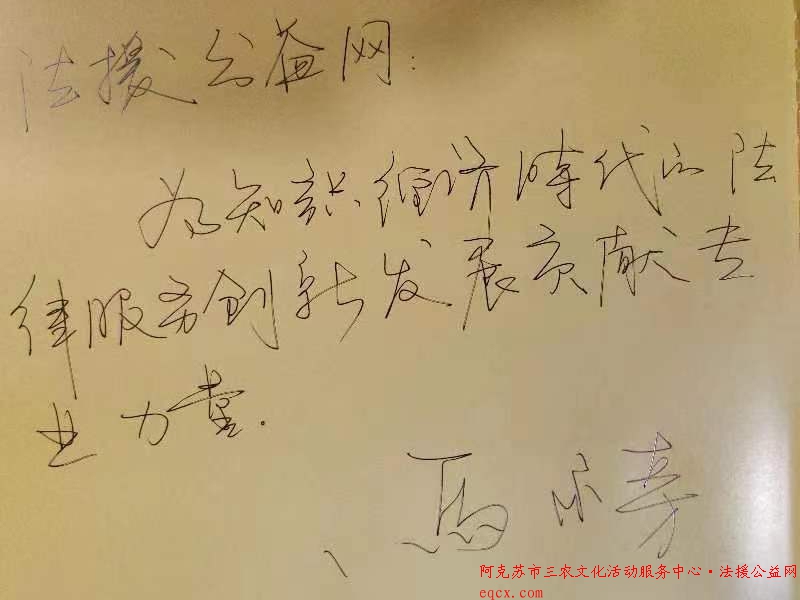 法援公益网:
为知识经济时代的法
律服务创新发展贡献专
业力量.
馬
阿克苏市三农文化活动服务中心·法援公益网
eqcx.com